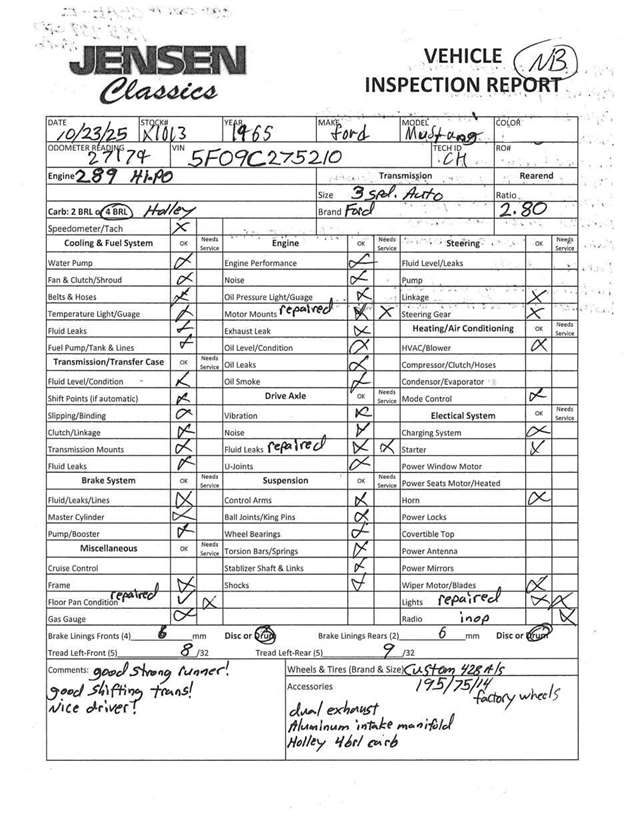 JENSEN
Classics
VEHICLE
INSPECTION REPORT
NB
DATE STOCK# YEAR MAKE MODEL COLOR
10/23/25 X1013 1965 Ford Mustang
ODOMETER READING VIN TECH ID RO#
27174 5F09C275210 CH
Engine 289 Hi-PO Transmission Rearend
Size 3 spd. Auto Ratio
Carb: 2 BRL or 4 BRL Holley Brand Ford 2.80
Speedometer/Tach
Cooling & Fuel System OK Needs Service Engine OK Needs Service Steering OK Needs Service
Water Pump Engine Performance Fluid Level/Leaks
Fan & Clutch/Shroud Noise Pump
Belts & Hoses Oil Pressure Light/Guage Linkage
Temperature Light/Guage Motor Mounts repaired Steering Gear
Fluid Leaks Exhaust Leak Heating/Air Conditioning OK Needs Service
Fuel Pump/Tank & Lines Oil Level/Condition HVAC/Blower
Transmission/Transfer Case OK Needs Service Oil Leaks Compressor/Clutch/Hoses
Fluid Level/Condition Oil Smoke Condensor/Evaporator
Shift Points (if automatic) Drive Axle OK Needs Service Mode Control
Slipping/Binding Vibration Electical System OK Needs Service
Clutch/Linkage Noise Charging System
Transmission Mounts Fluid Leaks repaired Starter
Fluid Leaks U-Joints Power Window Motor
Brake System OK Needs Service Suspension OK Needs Service Power Seats Motor/Heated
Fluid/Leaks/Lines Control Arms Horn
Master Cylinder Ball Joints/King Pins Power Locks
Pump/Booster Wheel Bearings Covertible Top
Miscellaneous OK Needs Service Torsion Bars/Springs Power Antenna
Cruise Control Stablizer Shaft & Links Power Mirrors
Frame Shocks Wiper Motor/Blades
Floor Pan Condition repaired Lights repaired
Gas Gauge Radio inop
Brake Linings Fronts (4) 6 mm Disc or Drum Brake Linings Rears (2) 6 mm Disc or Drum
Tread Left-Front (5) 8 /32 Tread Left-Rear (5) 9 /32
Comments: good strong runner! Wheels & Tires (Brand & Size) Custom 428 A/S
good shifting trans! Accessories 195/75/14
Nice driver! factory wheels
dual exhaust
Aluminum intake manifold
Holley 4brl carb